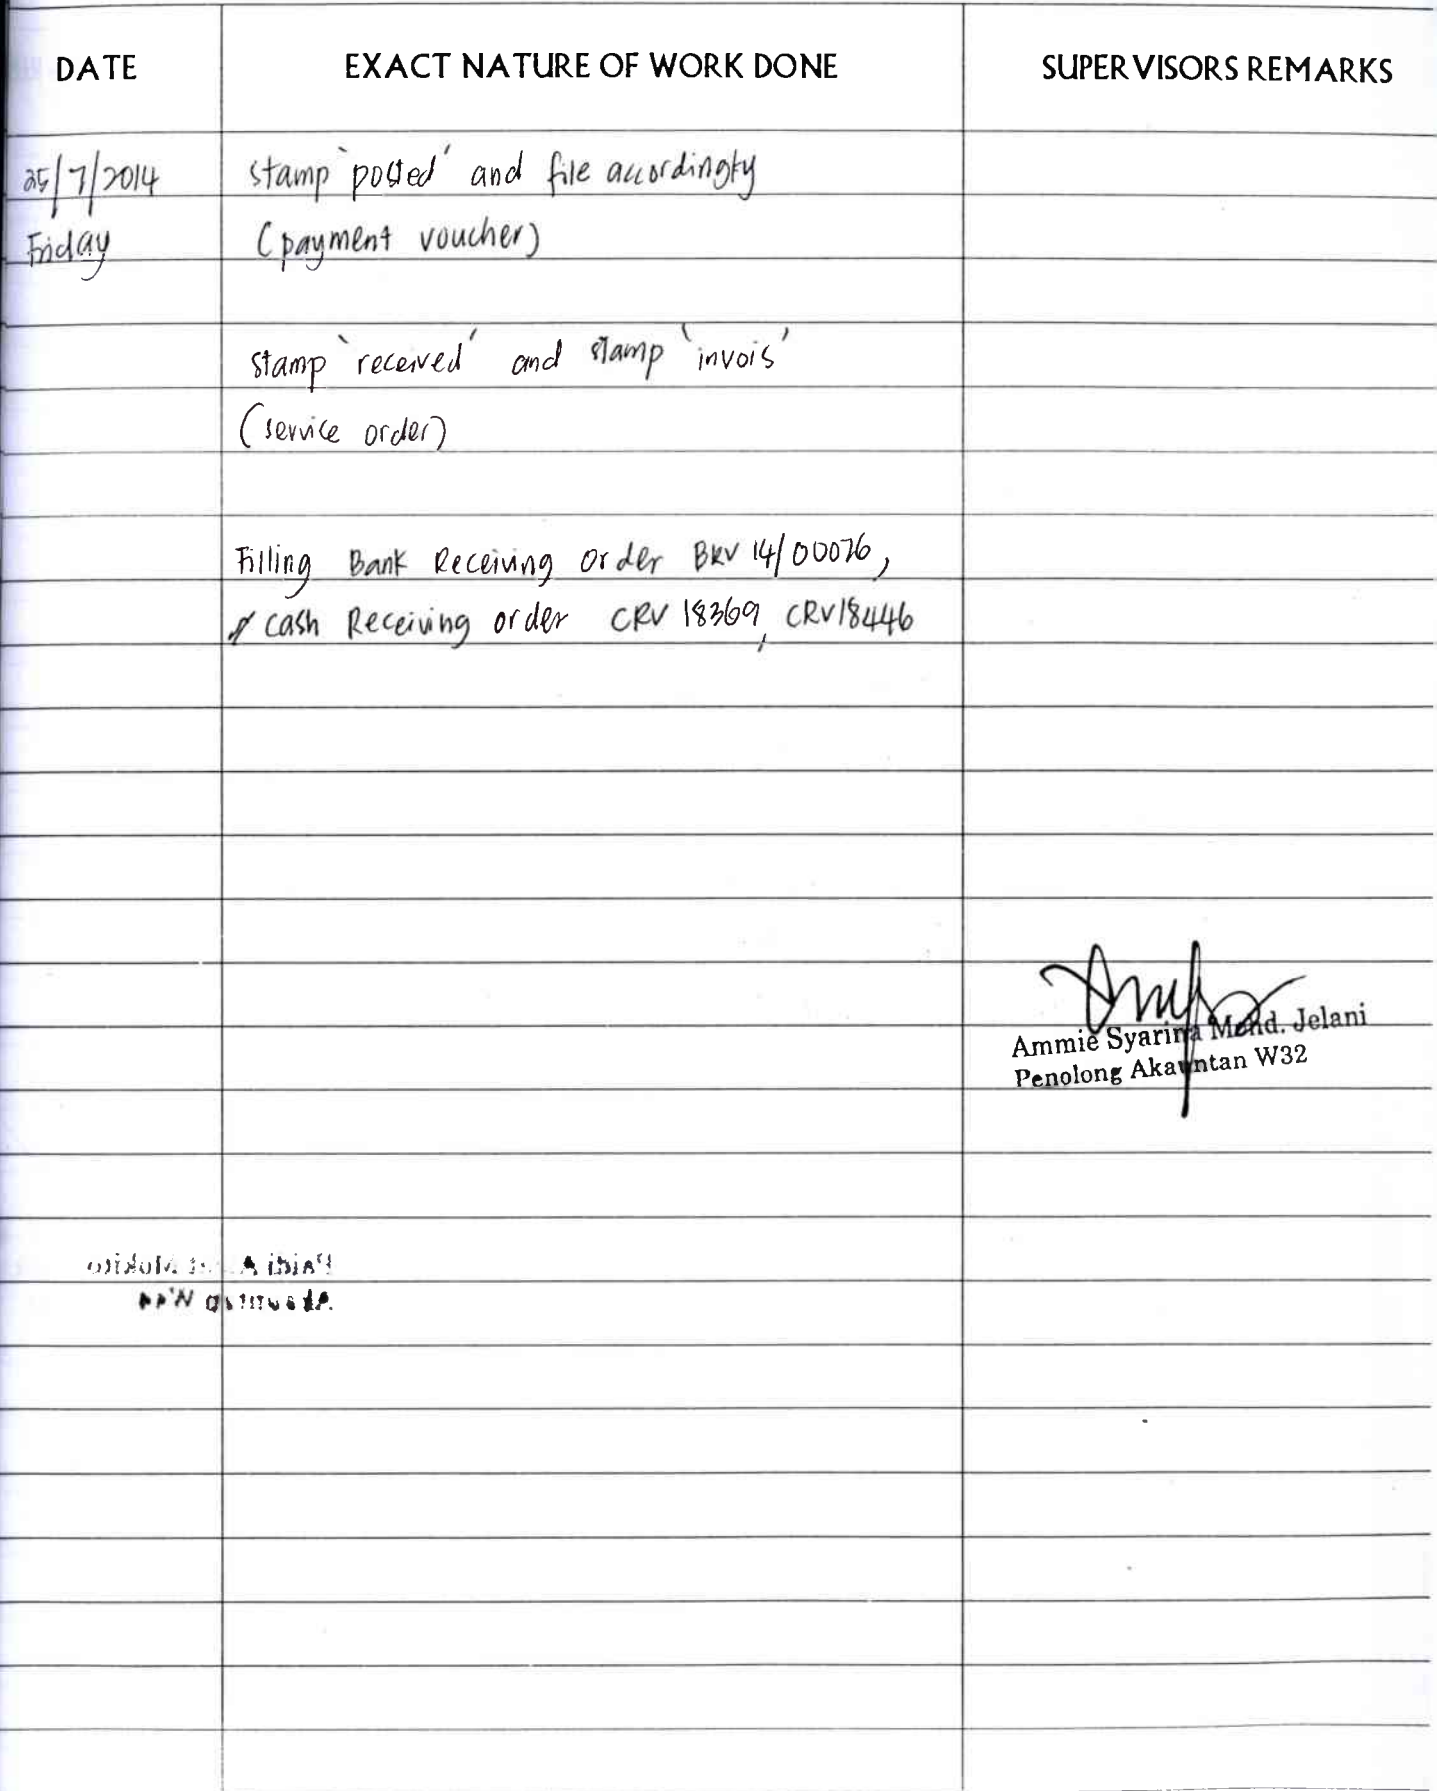 DATE EXACT NATURE OF WORK DONE SUPERVISORS REMARKS
25/7/2014 stamp `posted' and file accordingly
Friday (payment voucher)
stamp `received' and stamp `invois'
(service order)
Filling Bank Receiving Order BRV 14/00076,
cash Receiving order CRV 18369, CRV18446
Ammie Syarina Mohd. Jelani
Penolong Akauntan W32